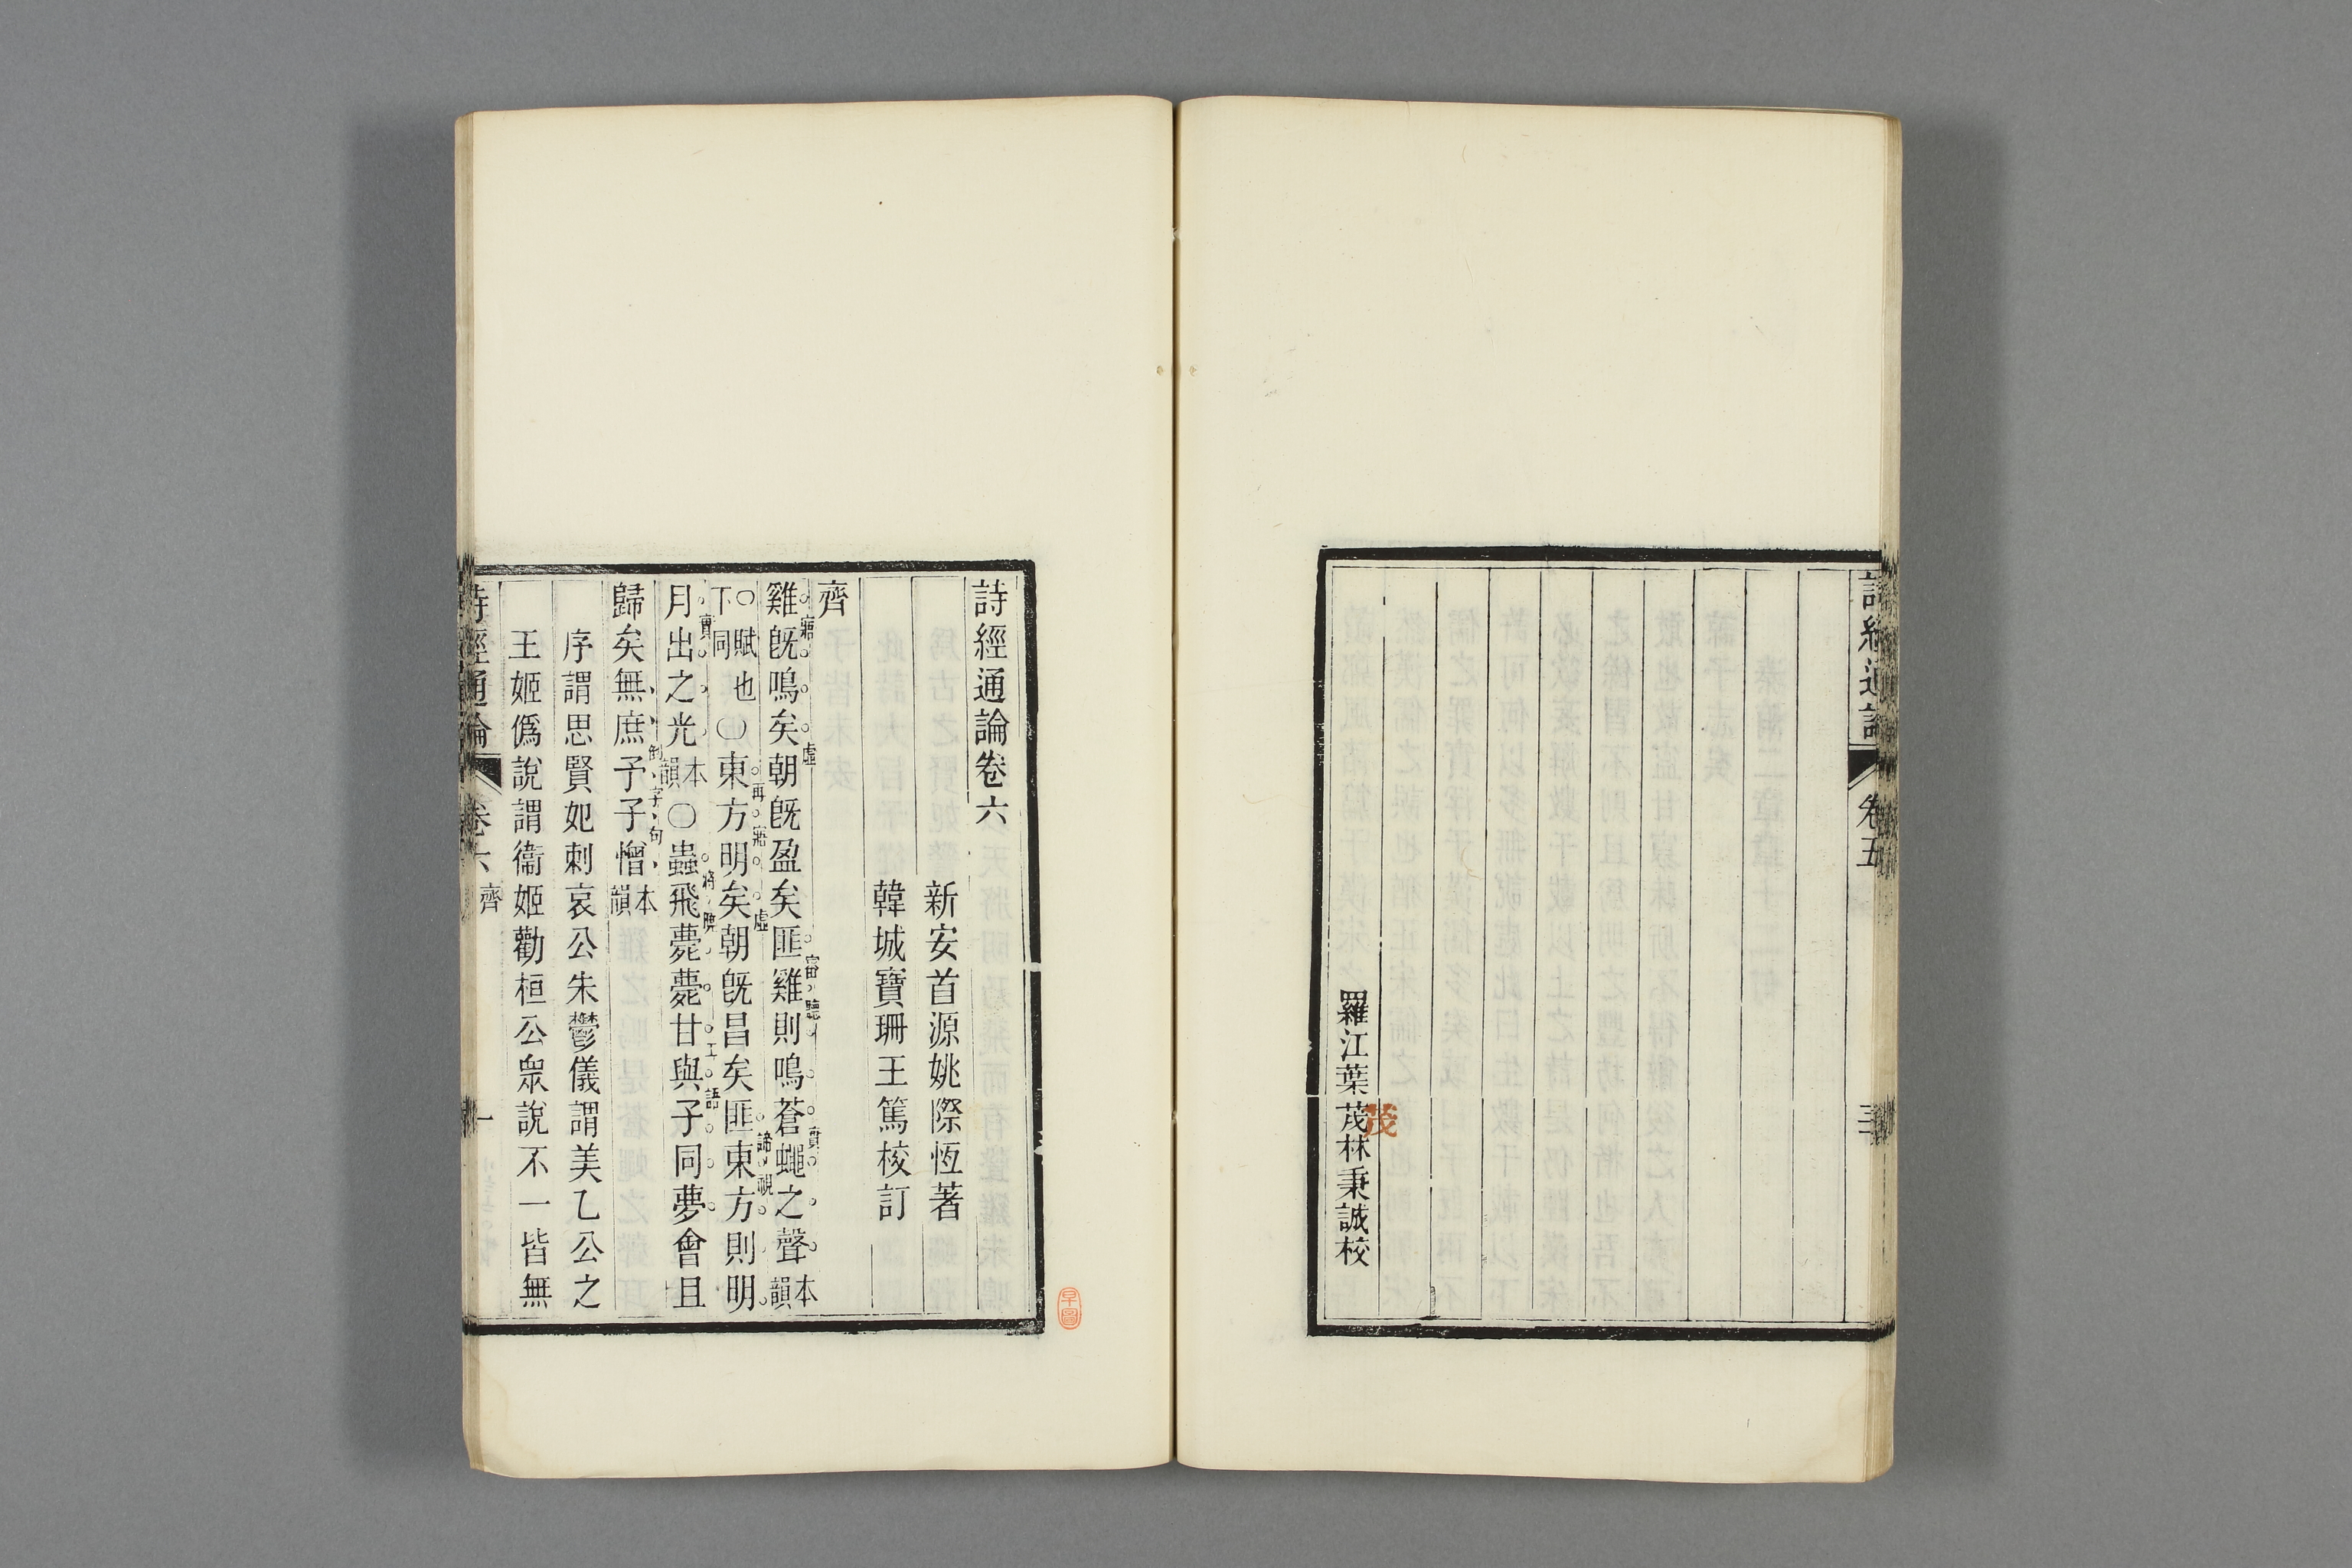 詩經通論 卷五
羅江葉茂林秉誠校
茂
詩經通論卷六
新安首源姚際恆著
韓城寶珊王篤校訂
齊
雞旣鳴矣朝旣盈矣匪雞則鳴蒼蠅之聲本韻
○賦也下同○東方明矣朝旣昌矣匪東方則明
月出之光本韻○蟲飛薨薨甘與子同夢會且
歸矣無庶予子憎本韻
序謂思賢妃刺哀公朱鬱儀謂美乙公之
王姬僞說謂衞姬勸桓公眾說不一皆無
詩經通論 卷六 齊 一
早圖